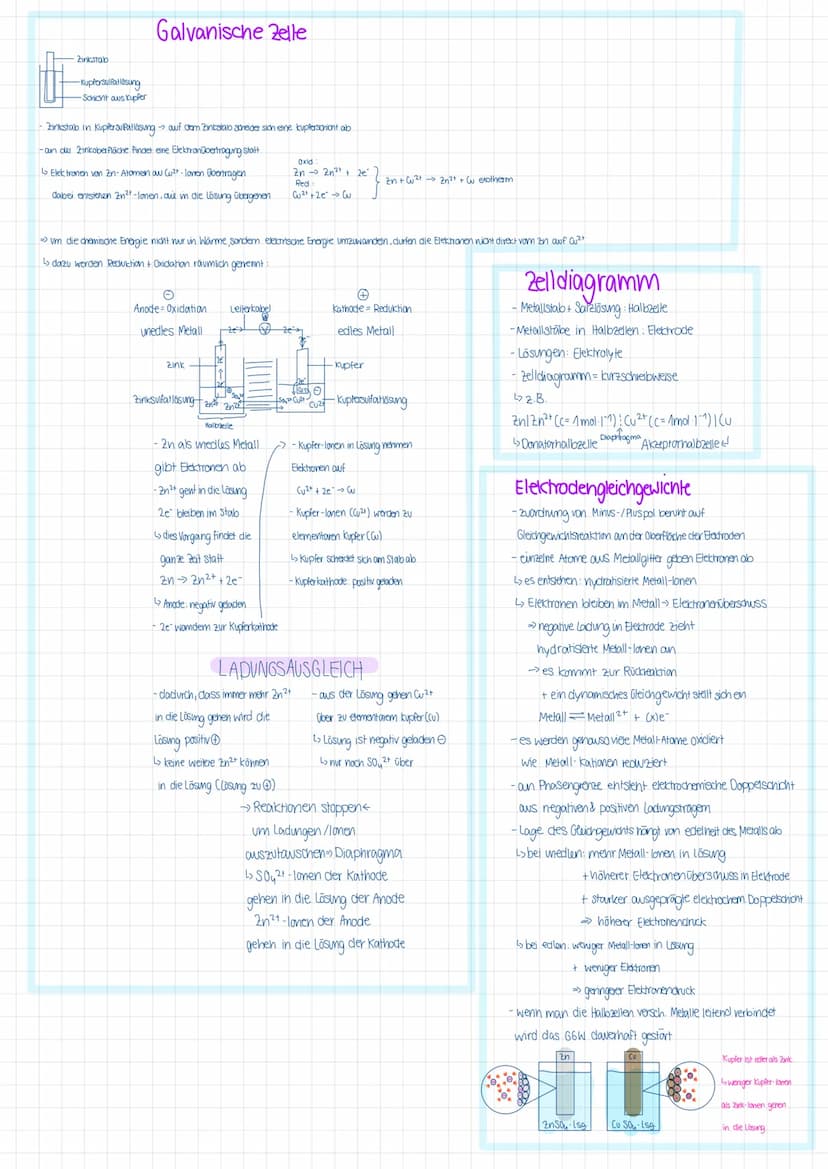 Galvanische Zelle
Zinkstab
Kupfersulfatlösung
Schicht aus Kupfer
- Zinkstab in Kupfersulfatlösung → auf dem Zinkstab scheidet sich eine Kupferschicht ab
- an der Zinkoberfläche findet eine Elektronübertragung statt
↳ Elektronen von Zn-Atomen auf Cu²⁺-Ionen übertragen
dabei entstehen Zn²⁺-Ionen, die in die Lösung übergehen
Oxid:
Zn → Zn²⁺ + 2e⁻
Red:
Cu²⁺ + 2e⁻ → Cu
Zn + Cu²⁺ → Zn²⁺ + Cu exotherm
⇒ um die chemische Energie nicht nur in Wärme, sondern elektrische Energie umzuwandeln, dürfen die Elektronen nicht direkt vom Zn auf Cu²⁺
↳ dazu werden Reduktion + Oxidation räumlich getrennt:
⊖
Anode = Oxidation
unedles Metall
Leiterkabel
⊕
Kathode = Reduktion
edles Metall
2e⁻ V 2e⁻
Zink
Kupfer
Zinksulfatlösung
Kupfersulfatlösung
Zn²⁺ Zn²⁺ SO₄²⁻ Cu²⁺ Cu²⁺
Halbzelle
- Zn als unedles Metall
gibt Elektronen ab
- Zn²⁺ geht in die Lösung
2e⁻ bleiben im Stab
↳ dies Vorgang findet die
ganze Zeit statt
Zn → Zn²⁺ + 2e⁻
↳ Anode: negativ geladen
- 2e⁻ wandern zur Kupferkathode
- Kupfer-Ionen in Lösung nehmen
Elektronen auf
Cu²⁺ + 2e⁻ → Cu
- Kupfer-Ionen (Cu²⁺) werden zu
elementaren Kupfer (Cu)
↳ Kupfer scheidet sich am Stab ab
- Kupferkathode positiv geladen
LADUNGSAUSGLEICH
- dadurch, dass immer mehr Zn²⁺
in die Lösung gehen wird die
Lösung positiv ⊕
↳ keine weitere Zn²⁺ können
in die Lösung (Lösung zu ⊕)
- aus der Lösung gehen Cu²⁺
über zu elementarem Kupfer (Cu)
↳ Lösung ist negativ geladen ⊖
↳ nur noch SO₄²⁻ über
→ Reaktionen stoppen ←
um Ladungen/Ionen
auszutauschen ⇒ Diaphragma
↳ SO₄²⁻-Ionen der Kathode
gehen in die Lösung der Anode
Zn²⁺-Ionen der Anode
gehen in die Lösung der Kathode
Zelldiagramm
- Metallstab + Salzlösung: Halbzelle
- Metallstäbe in Halbzellen: Elektrode
- Lösungen: Elektrolyte
- Zelldiagramm = Kurzschreibweise
↳ z.B.
Zn|Zn²⁺ (c= 1mol l⁻¹) ⋮ Cu²⁺ (c= 1mol l⁻¹) | Cu
↳ Donatorhalbzelle Diaphragma Akzeptorhalbzelle ↲
Elektrodengleichgewichte
- Zuordnung von Minus-/Pluspol beruht auf
Gleichgewichtsreaktion an der Oberfläche der Elektroden
- einzelne Atome aus Metallgitter geben Elektronen ab
↳ es entstehen: hydratisierte Metall-Ionen
↳ Elektronen bleiben im Metall → Elektronenüberschuss
⇒ negative Ladung in Elektrode zieht
hydratisierte Metall-Ionen an
→ es kommt zur Rückreaktion
+ ein dynamisches Gleichgewicht stellt sich ein
Metall ⇌ Metall²⁺ + (x)e⁻
- es werden genauso viele Metall-Atome oxidiert
wie Metall-Kationen reduziert
- an Phasengrenze entsteht elektrochemische Doppelschicht
aus negativen & positiven Ladungsträgern
- Lage des Gleichgewichts hängt von edelheit des Metalls ab
↳ bei unedlen: mehr Metall-Ionen in Lösung
+ höherer Elektronenüberschuss in Elektrode
+ stärker ausgeprägte elektrochem. Doppelschicht
⇒ höherer Elektronendruck
↳ bei edlen: weniger Metall-Ionen in Lösung
+ weniger Elektronen
⇒ geringerer Elektronendruck
- wenn man die Halbzellen versch. Metalle leitend verbindet
wird das GGW dauerhaft gestört
Zn
Cu
ZnSO₄-Lsg.
CuSO₄-Lsg.
Kupfer ist edler als Zink
↳ weniger Kupfer-Ionen
als Zink-Ionen gehen
in die Lösung